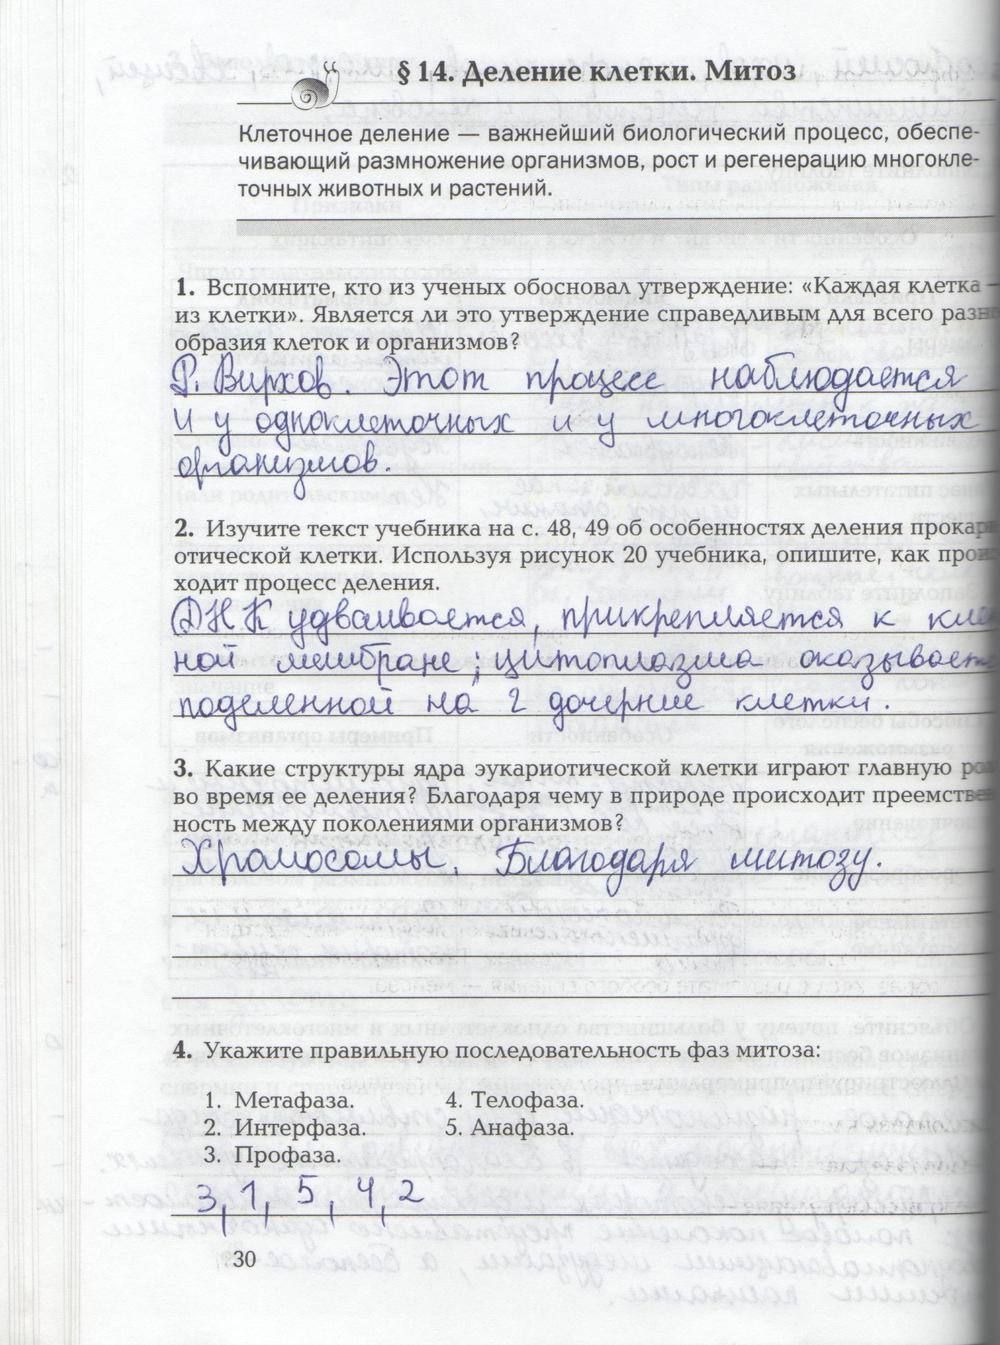 § 14. Деление клетки. Митоз
Клеточное деление — важнейший биологический процесс, обеспе-
чивающий размножение организмов, рост и регенерацию многокле-
точных животных и растений.
1. Вспомните, кто из ученых обосновал утверждение: «Каждая клетка —
из клетки». Является ли это утверждение справедливым для всего разно
образия клеток и организмов?
Р. Вирхов. Этот процесс наблюдается
и у одноклеточных и у многоклеточных
организмов.
2. Изучите текст учебника на с. 48, 49 об особенностях деления прокари
отической клетки. Используя рисунок 20 учебника, опишите, как проис
ходит процесс деления.
ДНК удваивается, прикрепляется к кле
ной мембране; цитоплазма оказывает
поделенной на 2 дочерние клетки.
3. Какие структуры ядра эукариотической клетки играют главную рол
во время ее деления? Благодаря чему в природе происходит преемствен
ность между поколениями организмов?
Хромосомы. Благодаря митозу.
4. Укажите правильную последовательность фаз митоза:
1. Метафаза. 4. Телофаза.
2. Интерфаза. 5. Анафаза.
3. Профаза.
3, 1, 5, 4, 2
30